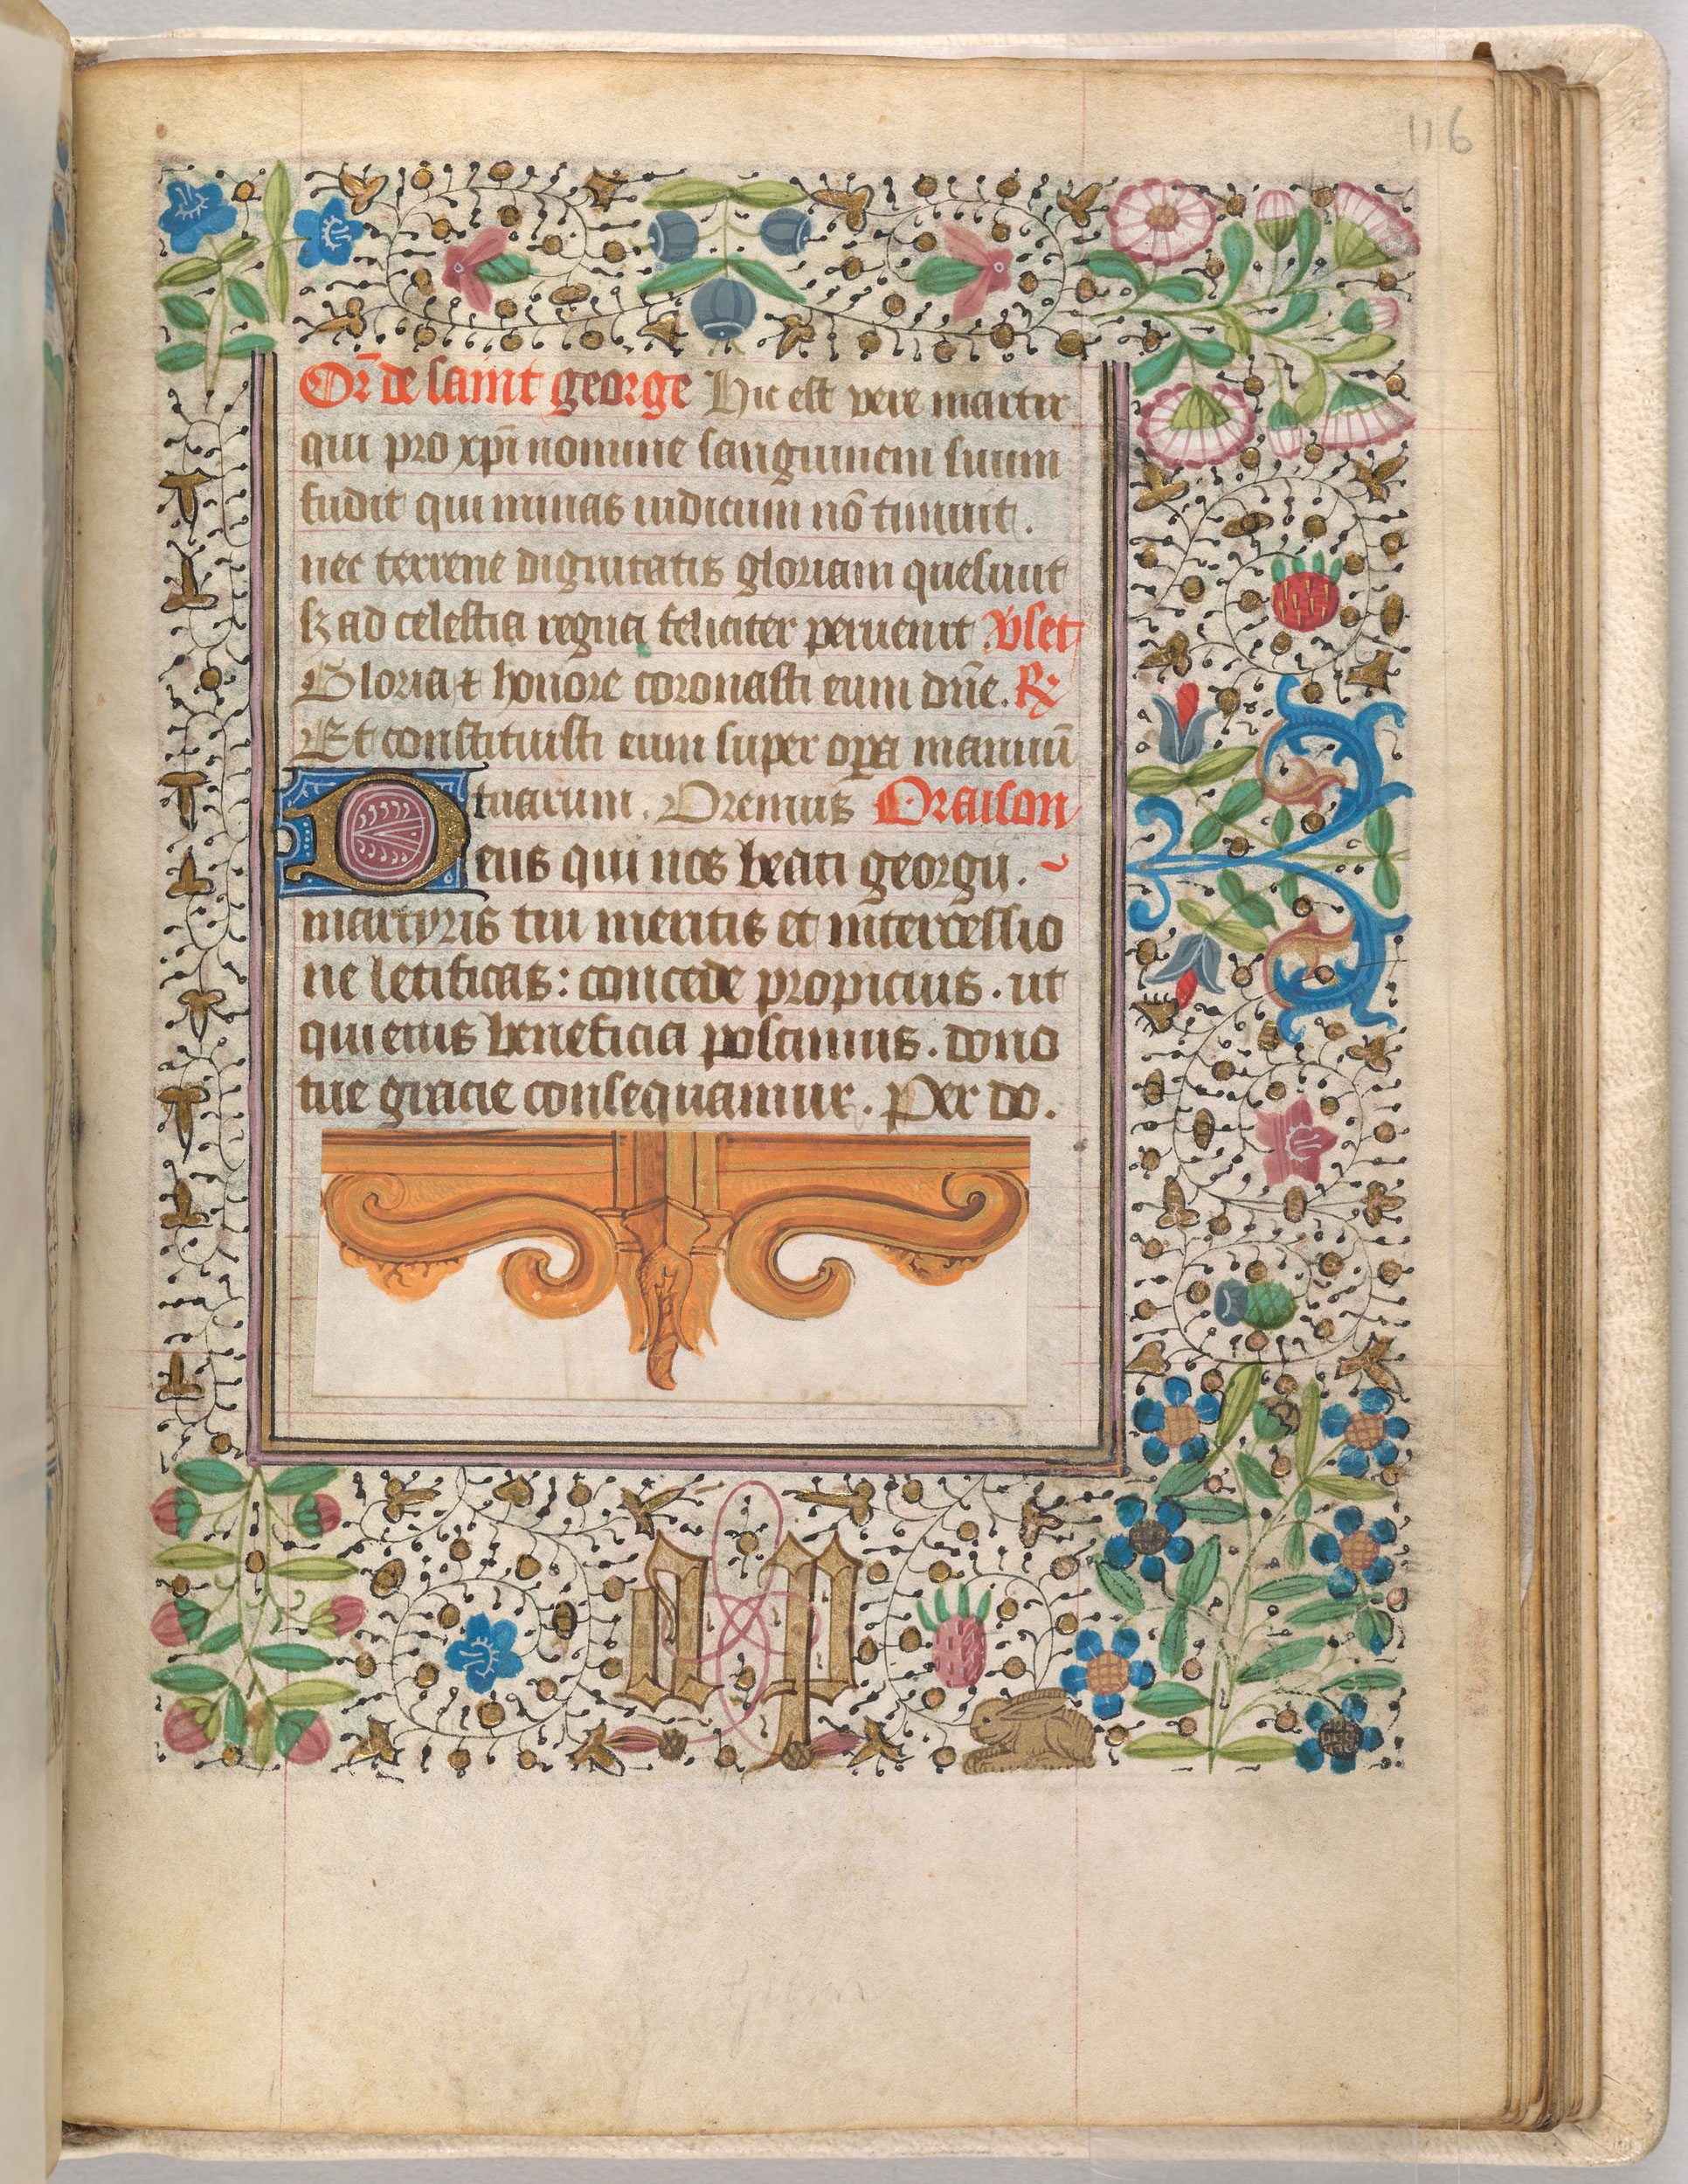 116
Or̄ de saint george Hic est vere martir
qui pro xp̄i nomine sanguinem suum
fudit qui minas iudicum nō timuit.
nec terrene dignitatis gloriam quesiuit
sꝫ ad celestia regna feliciter peruenit. Vset
Gloria ⁊ honore coronasti eum dn̄e. ℞
Et constituisti eum super oꝑa manuū
tuarum. Oremus Oraison
Deus qui nos beati georgii.
martyris tui meritis et intercessio
ne letificas: concede propicius. ut
qui eius beneficia poscimus. dono
tue gracie consequamur. Per do.